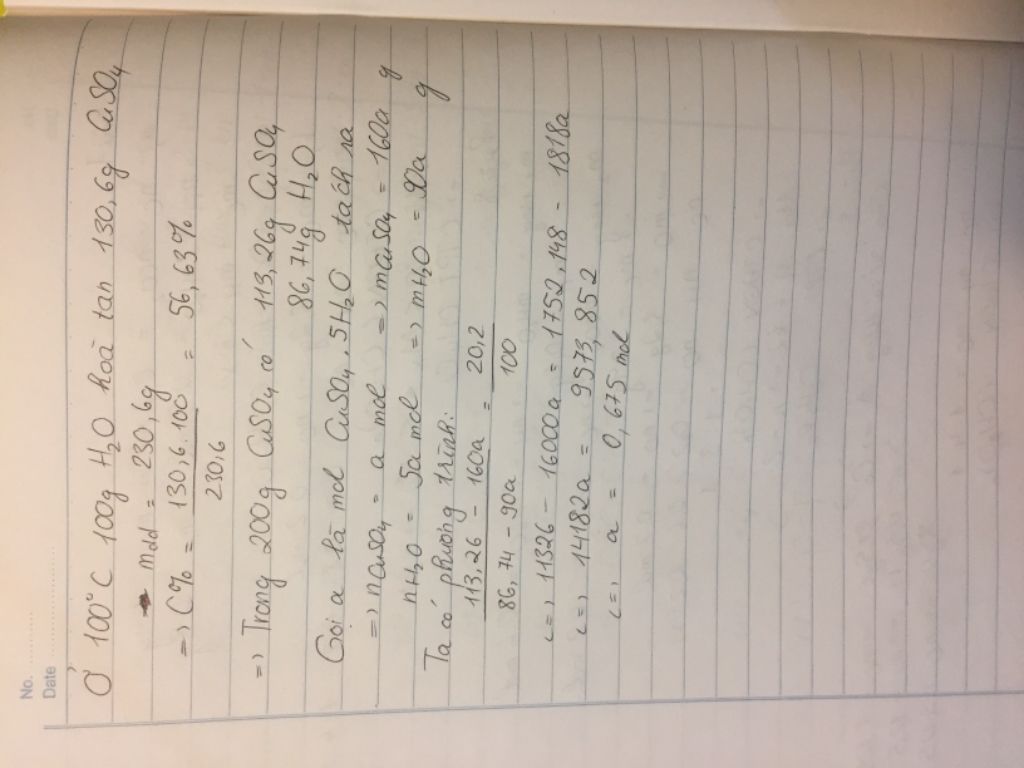 No. ............
Date ..................
Ở 100°C 100g H₂O hoà tan 130,6g CuSO₄
mdd = 230,6g
=> C% = 130,6.100 / 230,6 = 56,63%
=> Trong 200g CuSO₄ có 113,26g CuSO₄
86,74g H₂O
Gọi a là mol CuSO₄.5H₂O tách ra
=> nCuSO₄ = a mol => mCuSO₄ = 160a g
nH₂O = 5a mol => mH₂O = 90a g
Ta có phương trình:
113,26 - 160a / 86,74 - 90a = 20,2 / 100
<=> 11326 - 16000a = 1752,148 - 1818a
<=> 14182a = 9573,852
<=> a = 0,675 mol